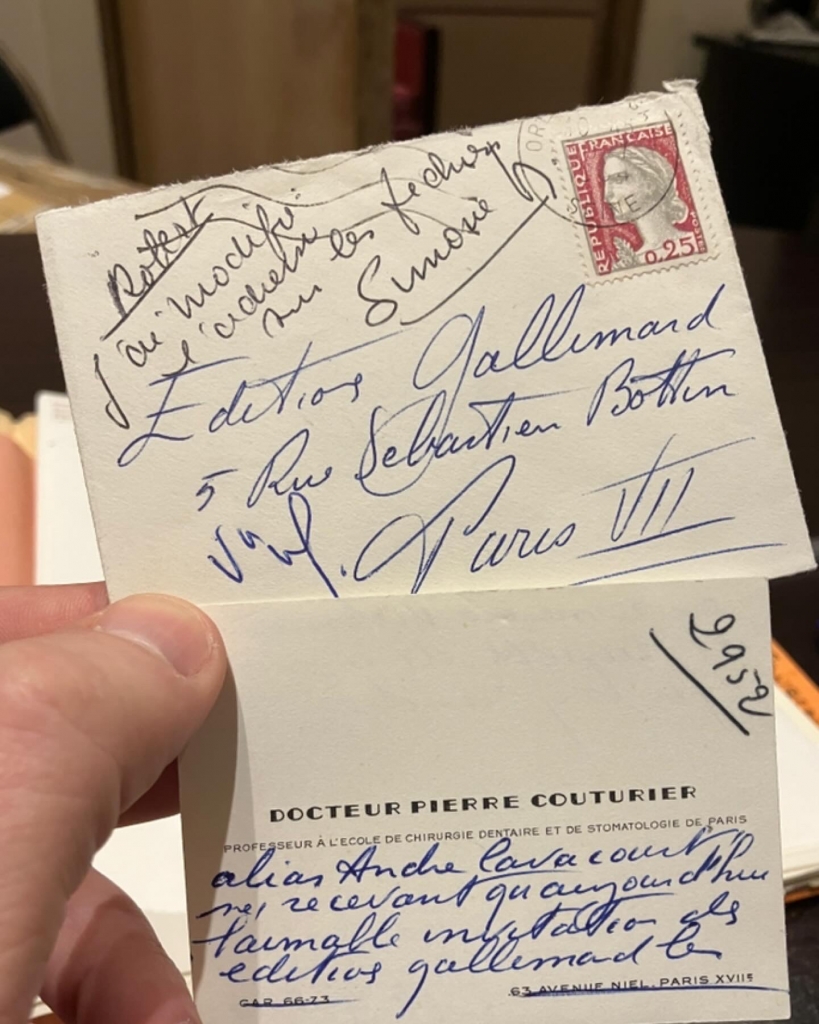 Robert
J'ai modifié
l'adresse
sur les fichiers
Simone
REPUBLIQUE FRANÇAISE
0,25
Editions Gallimard
5 Rue Sebastien Bottin
Paris VII
2952
DOCTEUR PIERRE COUTURIER
PROFESSEUR À L'ECOLE DE CHIRURGIE DENTAIRE ET DE STOMATOLOGIE DE PARIS
alias André Lavacourt
ne, recevant qu'aujourd'hui
l'aimable invitation des
editions gallimard les
CAR 66-73
63 AVENUE NIEL, PARIS XVIIE